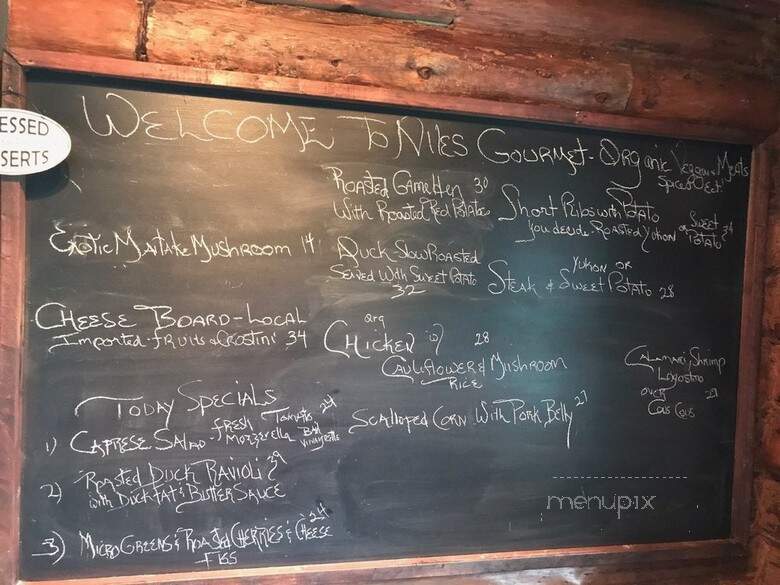 ESSED
SERTS
WELCOME To Niles Gourmet - Organic Veggies Meats
Spices Oct!
Exotic Maitake Mushroom 14
CHEESE BOARD - LOCAL
Imported. fruits & Crostini 34
Roasted Game Hen 30
With Roasted Red Potatoe
Duck - Slow Roasted
Served With Sweet Potato
32
org
Chicken w/ 28
Cauliflower & Mushroom
Rice
Scalloped Corn With Pork Belly 27
Short Ribs with Potato
you decide Roasted Yukon or Sweet Potato 34
Yukon or
Steak & Sweet Potato 28
Calamari, Shrimp
over
Cous Cous 29
Today Specials
1) Caprese Salad - Fresh Mozzerella Tomato 24
Vinaigrette
2) Roasted Duck Ravioli 29
with Duck Fat & Butter Sauce
3) Micro Greens & Roasted Cherries & Cheese 24
+ Figs
menupix